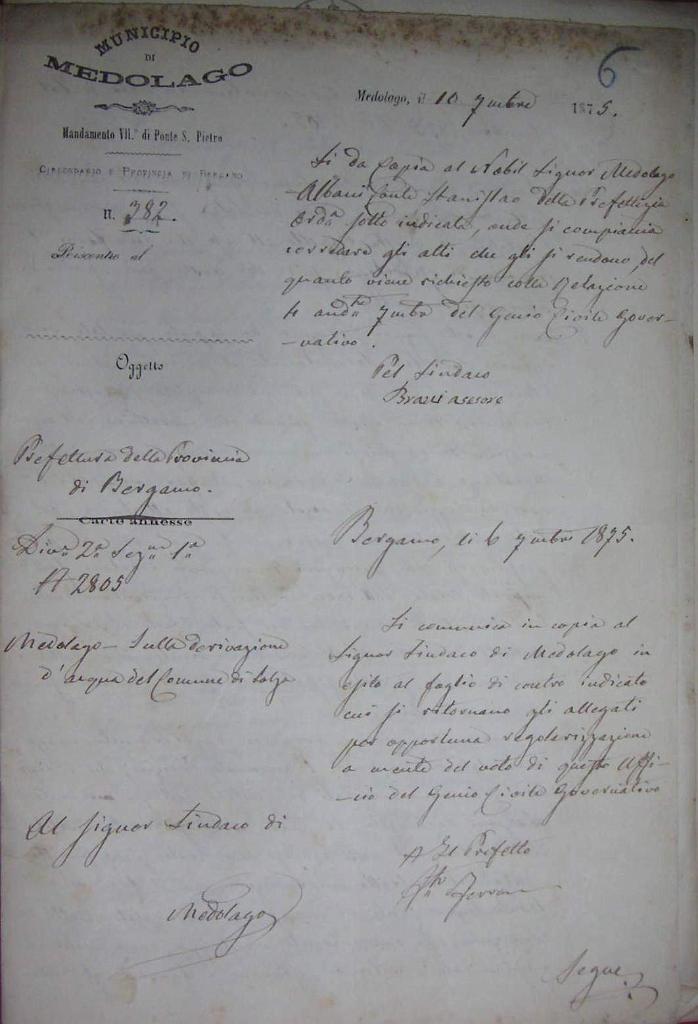 MUNICIPIO
DI
MEDOLAGO
Mandamento VII.° di Ponte S. Pietro
CIRCONDARIO E PROVINCIA DI BERGAMO
N. 382.
Riscontro al
Oggetto
6
Medolago, il 10 7mbre 1875.
Si da Copia al Nobil Signor Medolago
Albani Conte Stanislao della Prefettizia
Ord.a sotto indicata, onde si compiaccia
corredare gli atti che gli si rendono, del
quanto viene richiesto colla Relazione
4 and.te 7mbre del Genio Civile Gover-
-nativo.
Pel Sindaco
asesore
Prefettura della Provincia
di Bergamo.
Carte annesse
Div.ne 2a Sez.ne 1a
N 2805
Medolago - Sulla derivazione
d'acqua del Comune di Solza
Al Signor Sindaco di
Medolago
Bergamo, li 6 7mbre 1875.
Si comunica in copia al
Signor Sindaco di Medolago in
esito al foglio di contro indicato
cui si ritornano gli allegati
per opportuna regolarizzazione
a mente del voto di questo Uffi-
-cio del Genio Civile Governativo
Il Prefetto
Segue